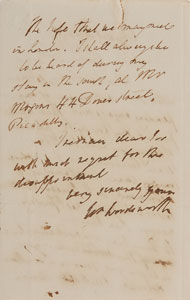 We hope that we may meet
in London. I shall always be
to be heard of during my
stay in the south, at Mr
Moxons 44 Dover Street,
Piccadilly.
dear Sir
with much regret for this
disappointment
very sincerely yours
Wm Wordsworth